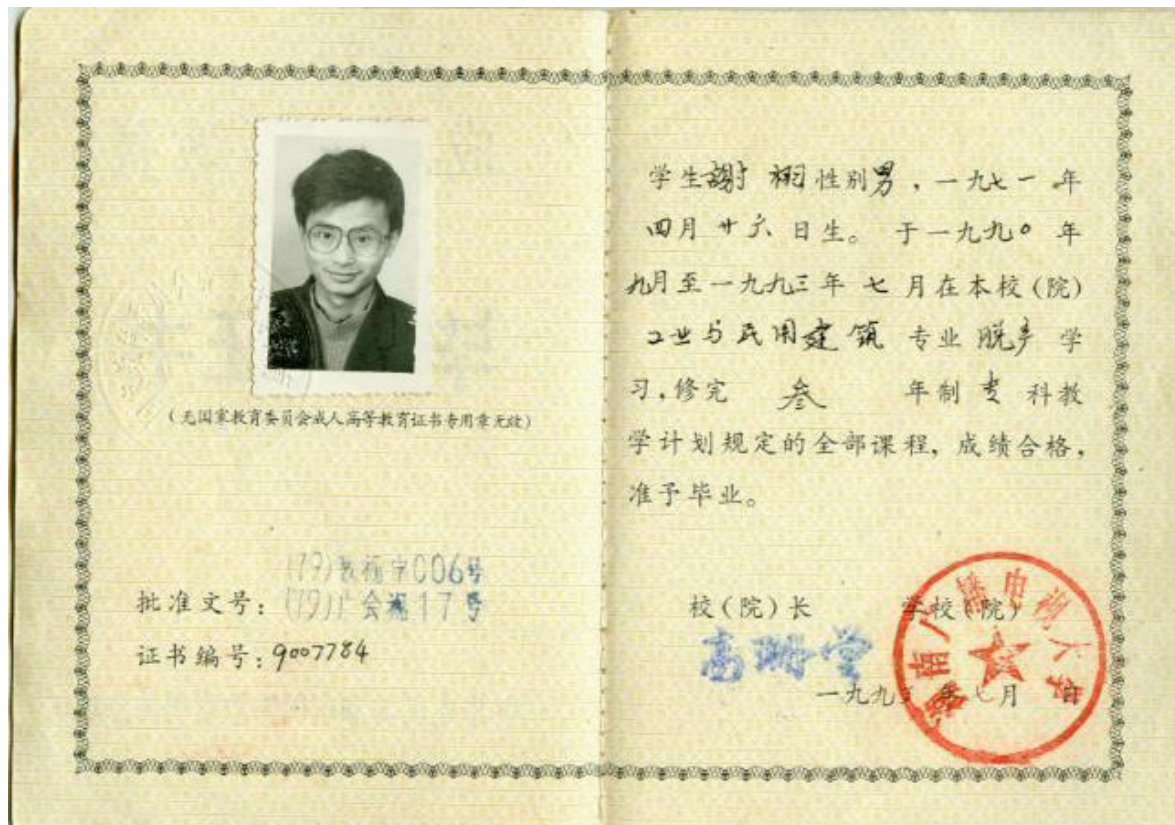 (无国家教育委员会成人高等教育证书专用章无效)
(79)教视字006号
批准文号: (79)广会视17号
证书编号: 9007784
学生謝 栩性别男,一九七一年
四月廿六日生。于一九九〇年
九月至一九九三年七月在本校(院)
工业与民用建筑 专业脱产学
习,修完 叁 年制专科教
学计划规定的全部课程,成绩合格,
准予毕业。
校(院)长 学校(院)
湖南广播电视大学
一九九三年七月 日